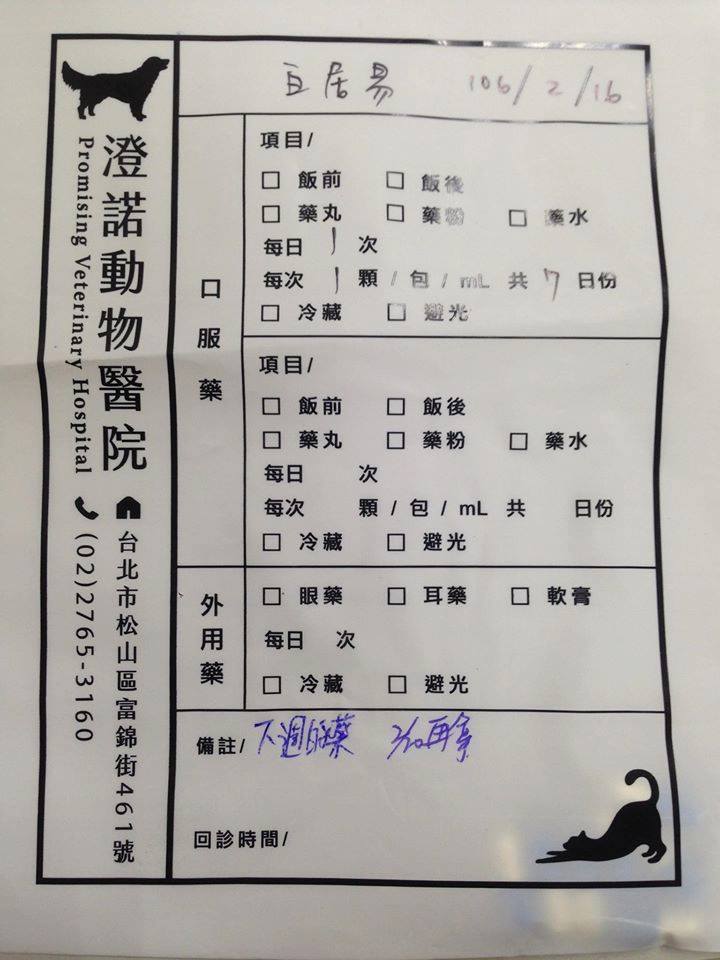 澄諾動物醫院
Promising Veterinary Hospital
台北市松山區富錦街461號
(02)2765-3160
居易 106/2/16
口服藥
項目/
□ 飯前 □ 飯後
□ 藥丸 □ 藥粉 □ 藥水
每日 1 次
每次 1 顆 / 包 / mL 共 7 日份
□ 冷藏 □ 避光
項目/
□ 飯前 □ 飯後
□ 藥丸 □ 藥粉 □ 藥水
每日 次
每次 顆 / 包 / mL 共 日份
□ 冷藏 □ 避光
外用藥
□ 眼藥 □ 耳藥 □ 軟膏
每日 次
□ 冷藏 □ 避光
備註/ 下週的藥 2/20再拿
回診時間/